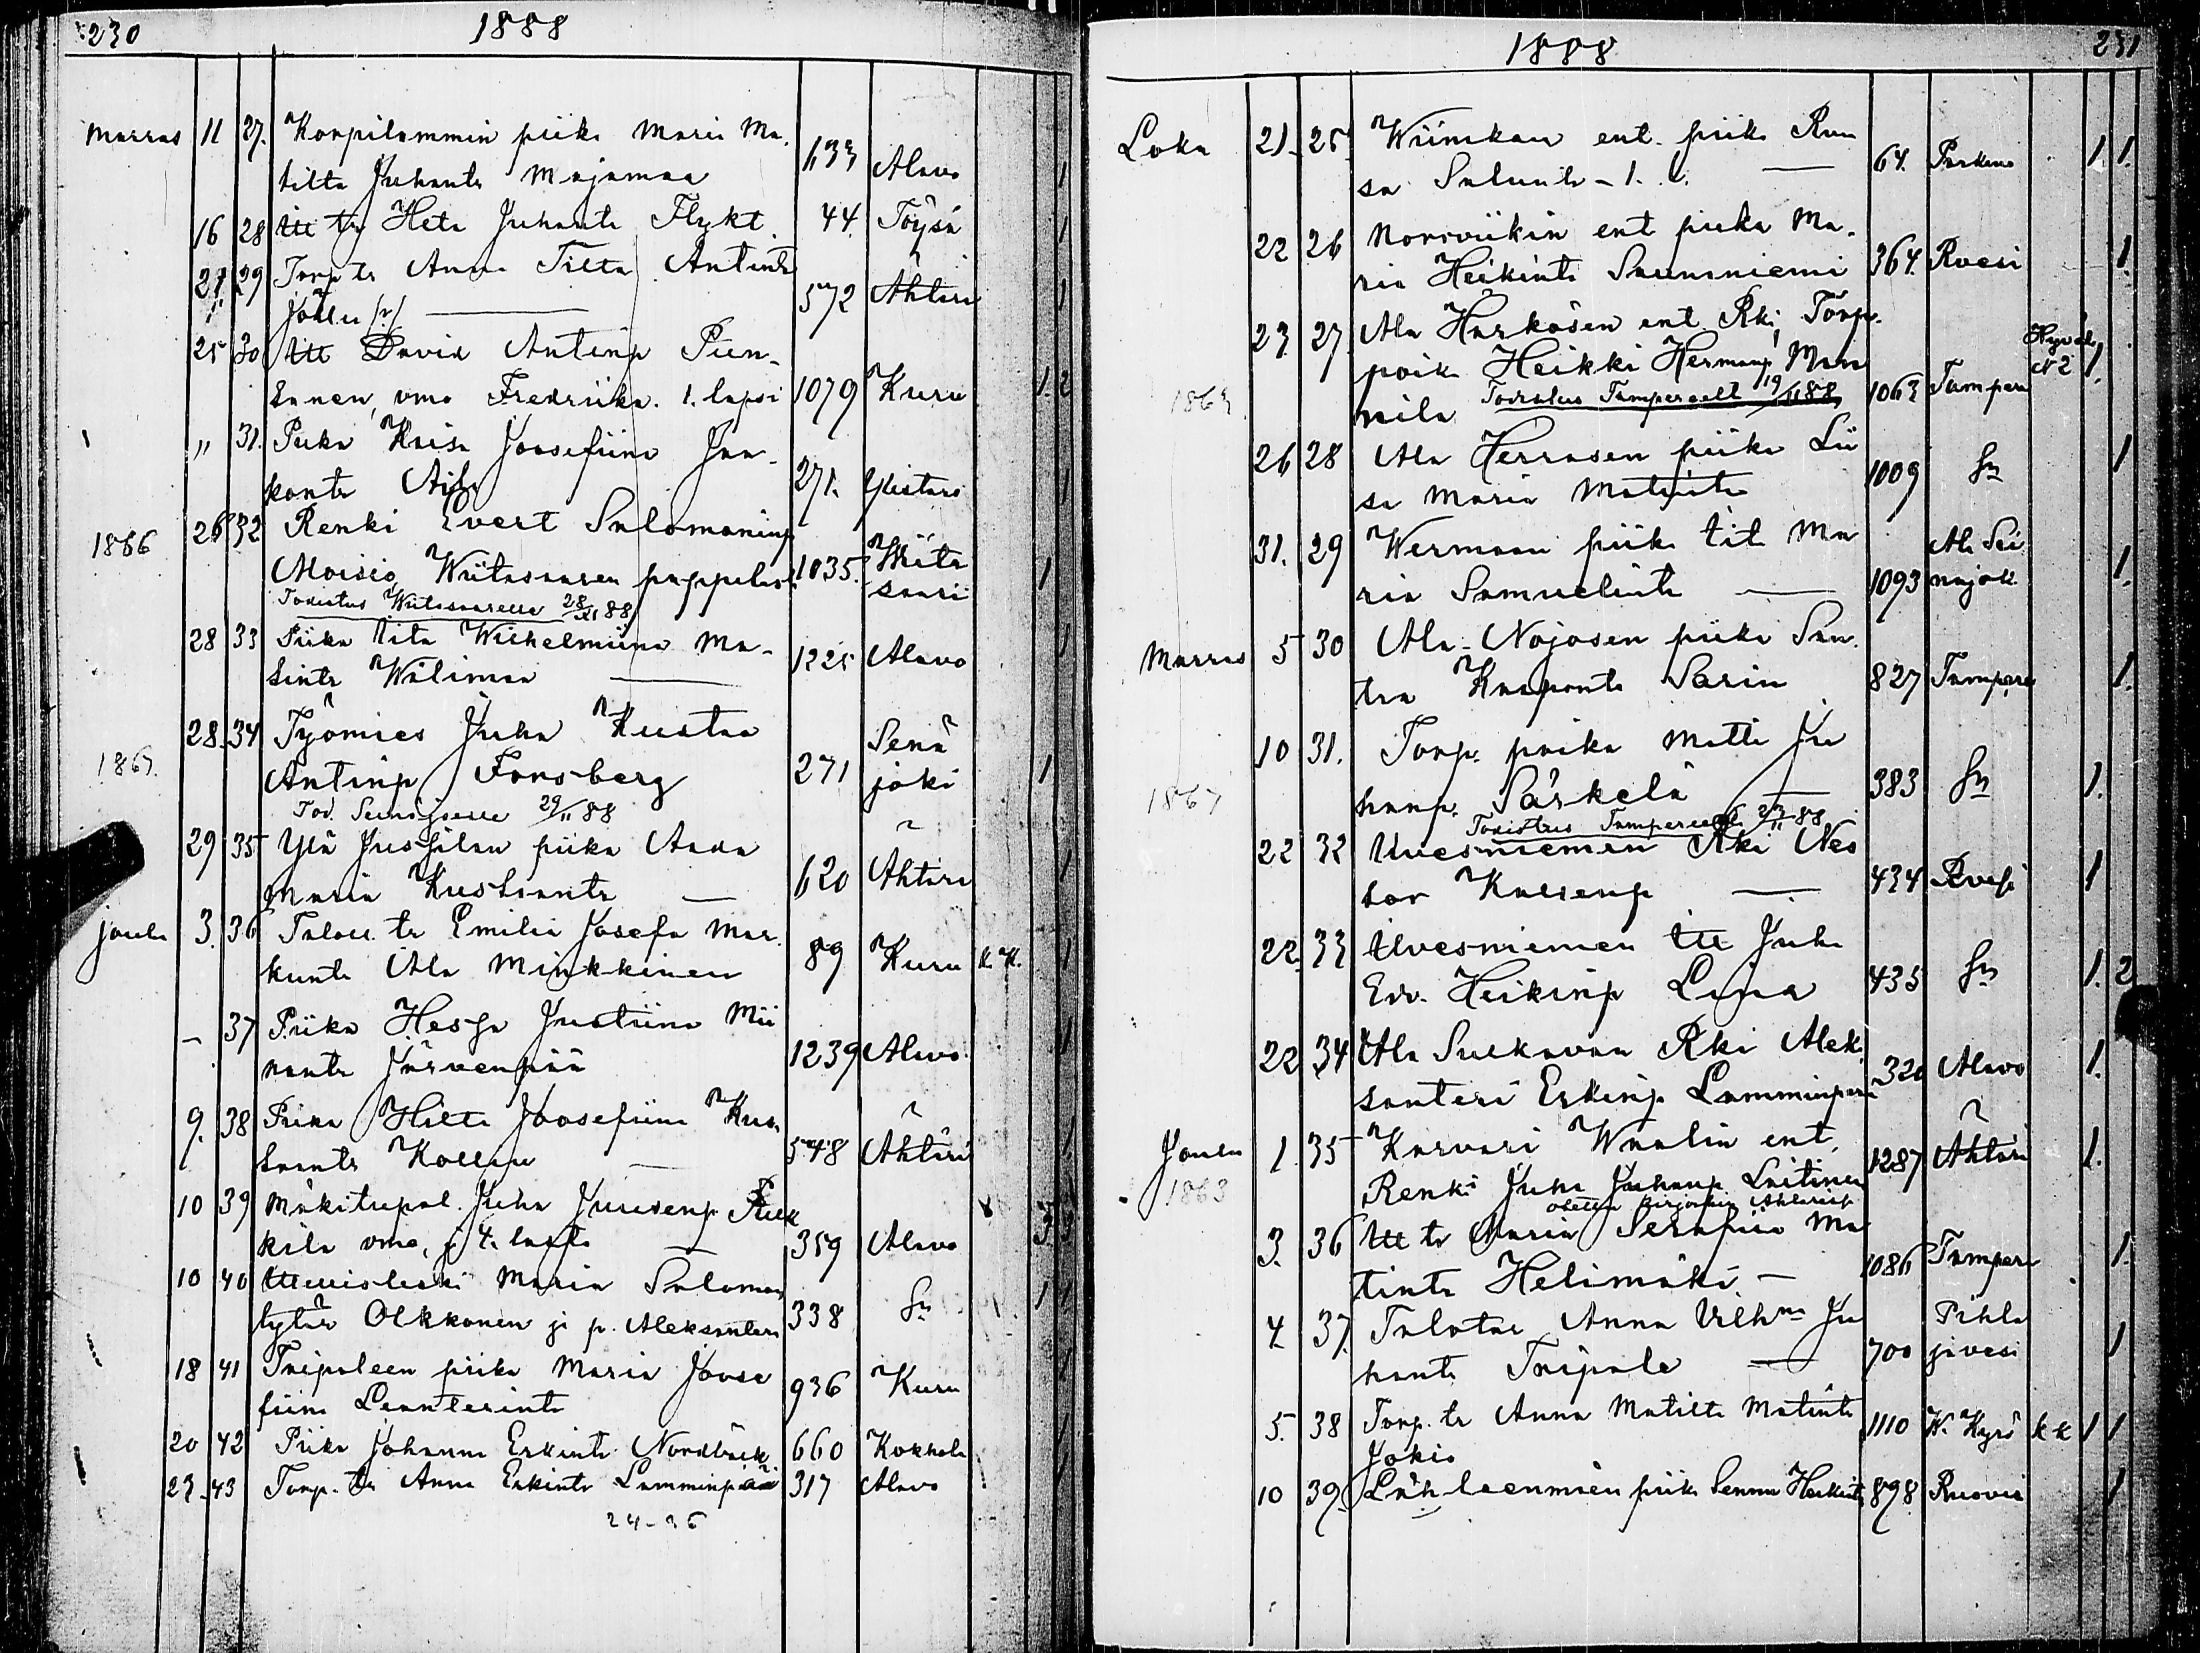 230 1888
Marras 11 27. Korpilammin piika Maria Ma-
tilta Juhante Majamaa 633 Alavo 1
16 28 Itt tr Heta Juhante Flykt 44. Töysä 1
29 Torp tr Anna Tilta Antinte
572 Ähtäri 1
25 30 Itt David Antinp Pien-
sanen, vmo Fredriika. 1. lapsi 1079 Kuru 1. 2
" 31. Piika Kaisa Joosefiina Jaa-
konte 271. Ylistaro 1
1866 26 32 Renki Evert Salomoninp
Aloisio, Wiitasaaren pappilast 1035. Wiita
saari 1
Todistus Wiitasaarelle 28/XI 88
28 33 Piika Tilta Wilhelmiina Ma-
tinte Wälimaa 1225 Alavo 1
28. 34 Työmies Juha Kustaa
1867. Antinp Forsberg 271 Seinä
joki 1
Tod. Seinäjoelle 29/11 88
29 35 Ylä Jussilan piika Aada
Maria Kustaante 620 Ähtäri 1
Joulu 3. 36 Talon tr Emilia Josefa Mar-
kunte Ala Minkkinen 89 Kuru K. K. 1
- 37 Piika Hessa Justiina Mii
nante Järvenpää 1239 Alavo 1
9. 38 Piika Hilta Joosefiina Kus-
taante Kollin 548 Ähtäri 1
10 39 Mäkitupal. Juha Juusenp
kila vmo, ja 4. lasta 359 Alavo 3. 3
10 40 Itt leski Maria Saloman
tytär Olkkonen ja p. Aleksanteri 338 Sn 1 1
18 41 Taipaleen piika Maria Joose
fiina Leanterinte 936 Kuru 1
20 42 Piika Johanna Erkinte Nordbäck 660 Kokkola 1
23. 43 Torp. tr Anna Erkinte Lamminpää 317 Alavo 1
24-36
1888 231
Loka 21. 25 Wiinikan ent. piika Ruu
sa Salunte - 1. l. 64. Parkano 1. 1.
22 26 Norrviikin ent piika Ma-
ria Heikinte Saunaniemi 364. Rvesi 1.
23. 27 Ala Härkösen ent. Rki, Torp.
poika Heikki Hermanp, Man
1863 nila Todistus Tampereelle 19/11 88 1063 Tampere N 2 1.
26 28 Ala Herrasen piika Lii
sa Maria Matinte 1009 Sn 1
31. 29 Wermaan piika tit. Ma
ria Samuelinte 1093 Al. Sei
näjok 1.
Marras 5 30 Ala-Nojosen piika San-
tra Kaaponte Sarin 827 Tampere 1.
10 31. Torp. poika Matti Ju
1867 hanp. Särkelä 383 Sn 1.
Todistus Tampereelle 23/11 88
22 32 Uvesniemen Rki Nes
tor Kallenp 434 Rvesi 1
22. 33 Uvesniemen Itt Juho
Edv. Heikinp Lina 435 Sn 1. 2
22 34 Ala Sulkavan Rki Alek
santeri Erkinp. Lamminpää 320 Alavo 1.
Joulu 1. 35 Karvari Waalin ent.
1863 Renki Juho Juhanp Laitinen 1287 Ähtäri 1.
3. 36 Itt tr Maria Serafiia Ma
tinte Helimäki 1086 Tampere 1.
4. 37. Talotar Anna Vilhna Ju
hante Taipale 700 Pihla
javesi 1
5. 38 Torp. tr Anna Matilta Matinte
Jokio 1110 W. Kyrö k k 1 1
10 39. Lähteenmäen piika Senna Heikinte 898 Ruovesi 1